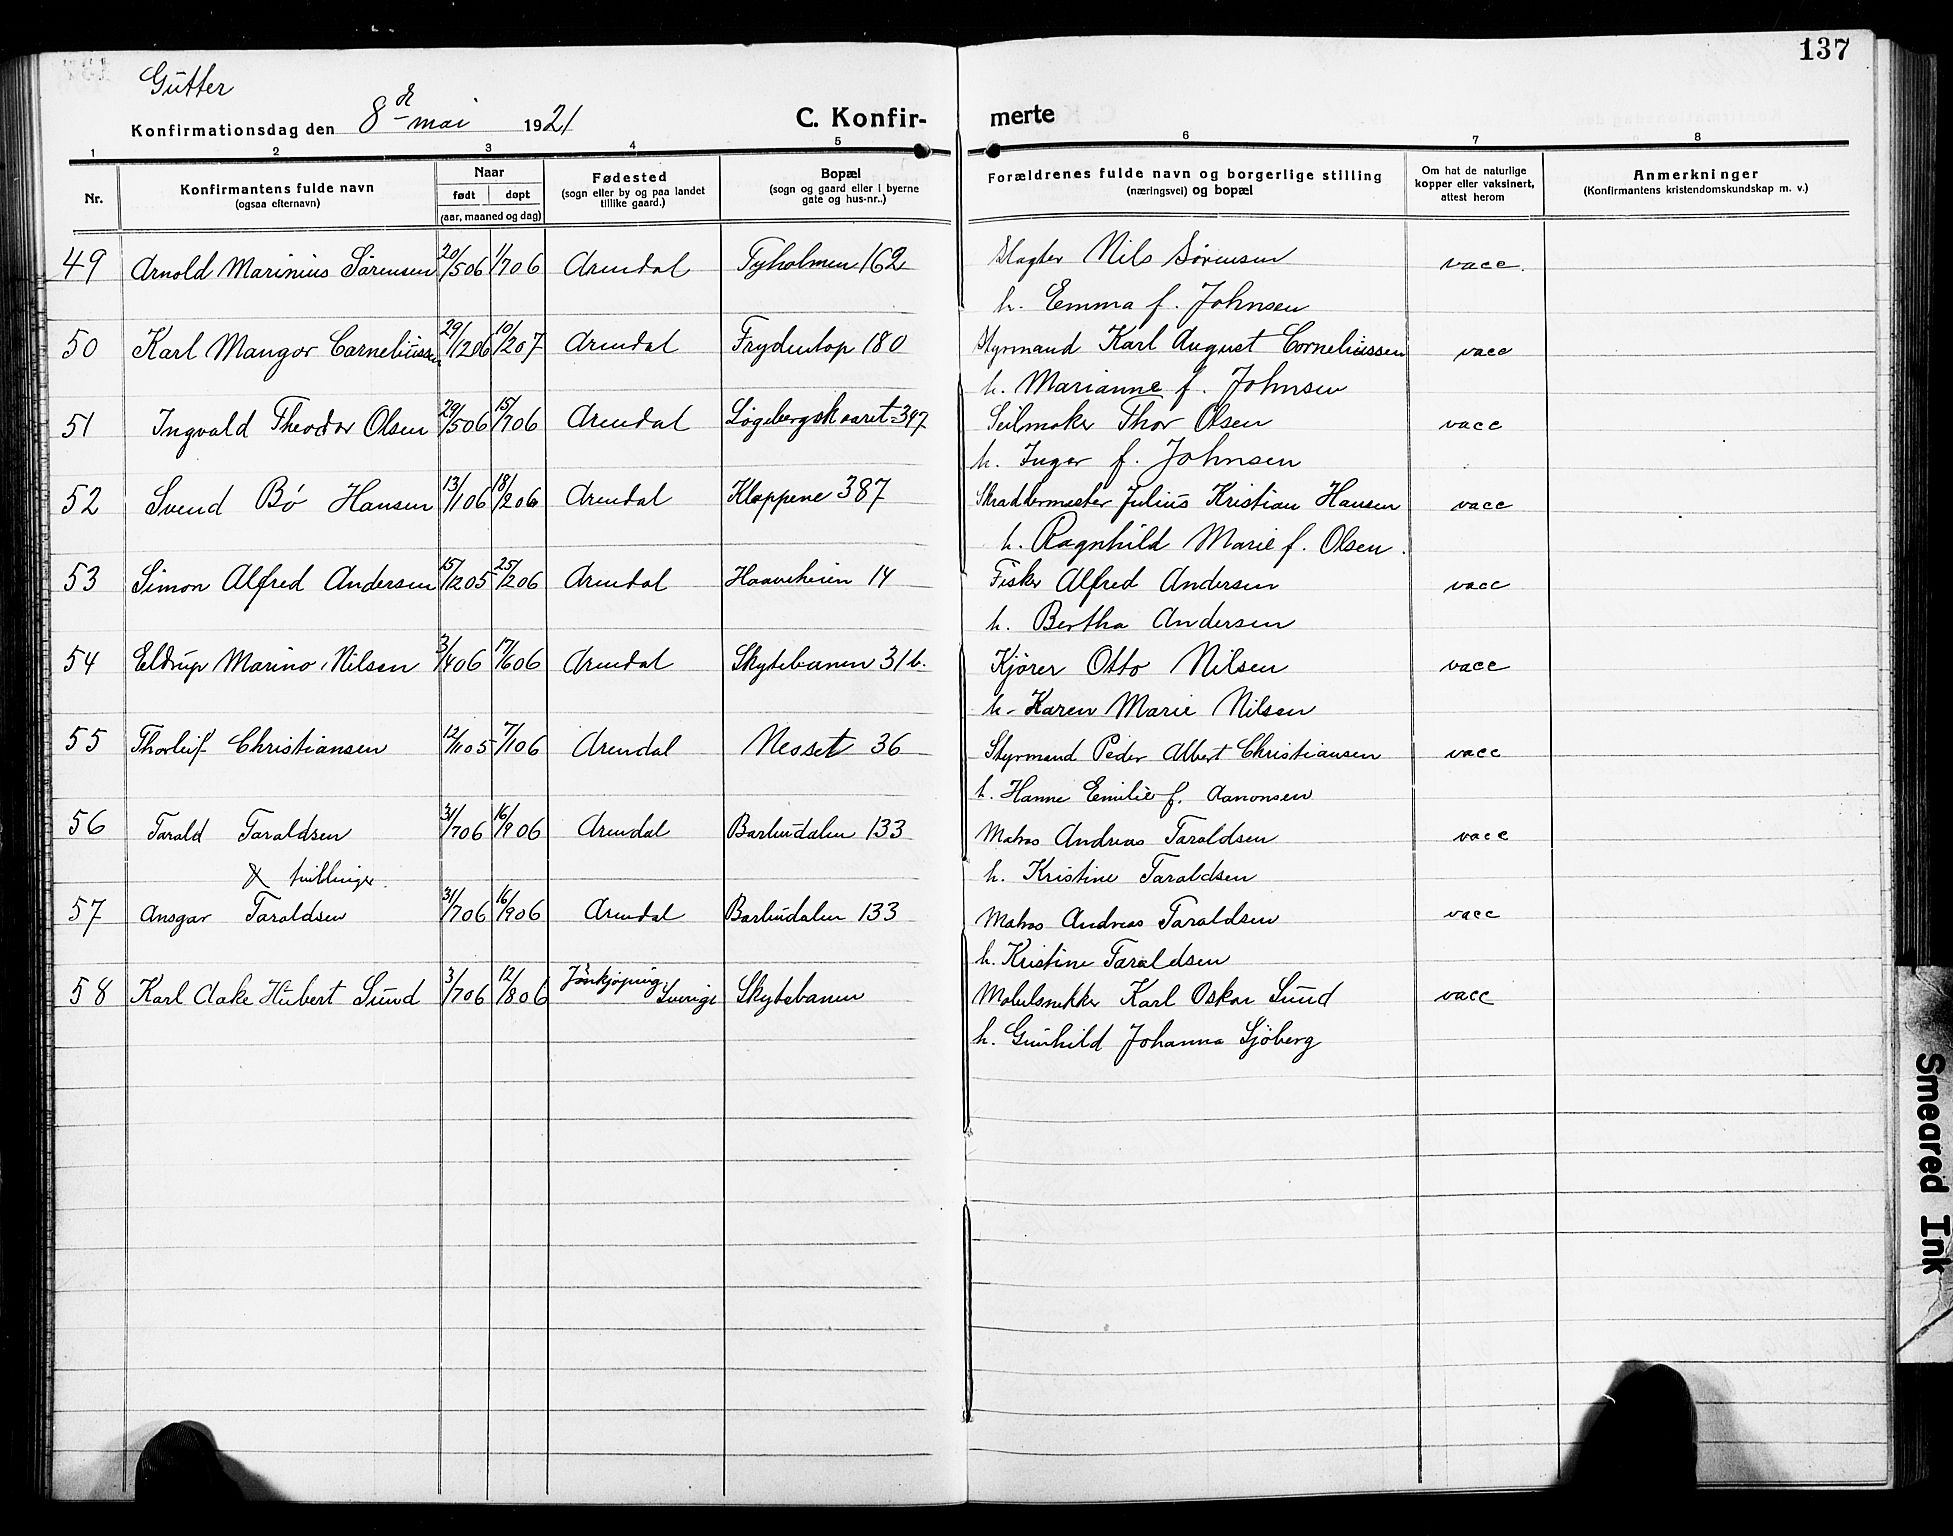 137
Gutter
Konfirmationsdag den 8de mai 1921
C. Konfir-
merte
1 2 3 4 5 6 7 8
Nr.
Konfirmantens fulde navn
(ogsaa efternavn)
Naar
født døpt
(aar, maaned og dag)
Fødested
(sogn eller by og paa landet
tillike gaard.)
Bopæl
(sogn og gaard eller i byerne
gate og hus-nr..)
Forældrenes fulde navn og borgerlige stilling
(næringsvei) og bopæl
Om hat de naturlige
kopper eller vaksinert,
attest herom
Anmerkninger
(Konfirmantens kristendomskundskap m. v.)
49 Arnold Marinius Sørensen 20/5 06 1/7 06 Arendal Tyholmen 162 Slagter Nils Sørensen vacc.
h. Emma f. Johnsen
50 Karl Mangor Corneliussen 29/12 06 10/2 07 Arendal Frydentop 180 Styrmand Karl August Corneliussen vacc
h. Marianne f. Johnsen
51 Ingvald Theodor Olsen 29/5 06 15/7 06 Arendal Løgebergskaaret 347 Seilmaker Thor Olsen vacc
h. Inger f. Johnsen
52 Svend Bø Hansen 13/1 06 18/2 06 Arendal Kloppene 387 Skraddermester Julius Kristian Hansen vacc
h. Ragnhild Marie f. Olsen.
53 Simon Alfred Andersen 15/12 05 25/2 06 Arendal Haaveheien 14 Fisker Alfred Andersen vacc
h. Bertha Andersen
54 Eldrup Marino Nilsen 3/4 06 17/6 06 Arendal Skytebanen 31 b. Kjører Otto Nilsen vacc
h. Karen Marie Nilsen
55 Thorleif Christiansen 12/1 05 7/1 06 Arendal Nesset 36 Styrmand Peder Albert Christiansen vacc
h. Hanne Emilie f. Aanonsen
56 Tarald Taraldsen 31/7 06 16/9 06 Arendal Barbudalen 133 Matros Andreas Taraldsen vacc
tvillinger. h. Kristine Taraldsen
57 Ansgar Taraldsen 31/7 06 16/9 06 Arendal Barbudalen 133 Matros Andreas Taraldsen vacc
h. Kristine Taraldsen
58 Karl Aake Hubert Sund 3/7 06 12/8 06 Jönkjøping, Sverige Skytebanen Møbelsnekker Karl Oskar Sund vacc
h. Gunhild Johanna Sjöberg
Smeared Ink